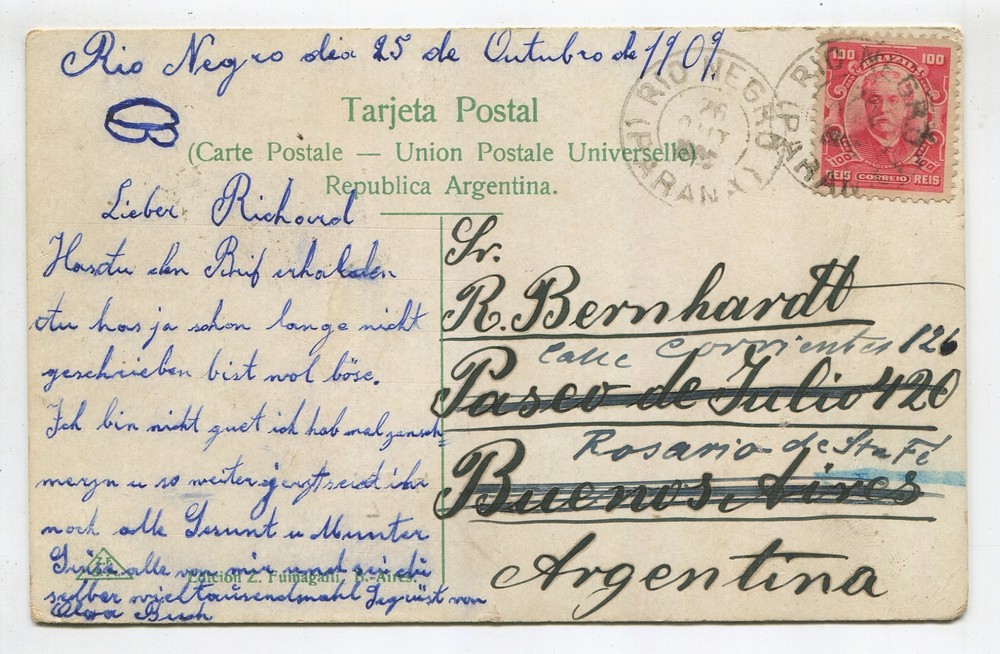 Rio Negro dia 25 de Outubro de 1909
Tarjeta Postal
(Carte Postale — Union Postale Universelle)
Republica Argentina.
RIO NEGRO
(PARANA)
26
RIO NEGRO
(PARANA
100 100
BRAZIL
REIS CORREIO REIS
Lieber Richard
Hastu den Brif erhalden
du has ja schon lange nicht
geschrieben bist wol böse.
Ich bin nicht guet ich hab mal
u so weiter seit ihr
noch alle Gesunt u Munter
Grüse alle von mir und sei du
selber vieltausendmahl Gegrüst von
Olga Buch
Edicion Z. Fumagalli, B.-Aires.
Sr.
R. Bernhardt
Calle Corrientes 126
Paseo de Julio 420
Rosario de Sta Fé
Buenos Aires
Argentina